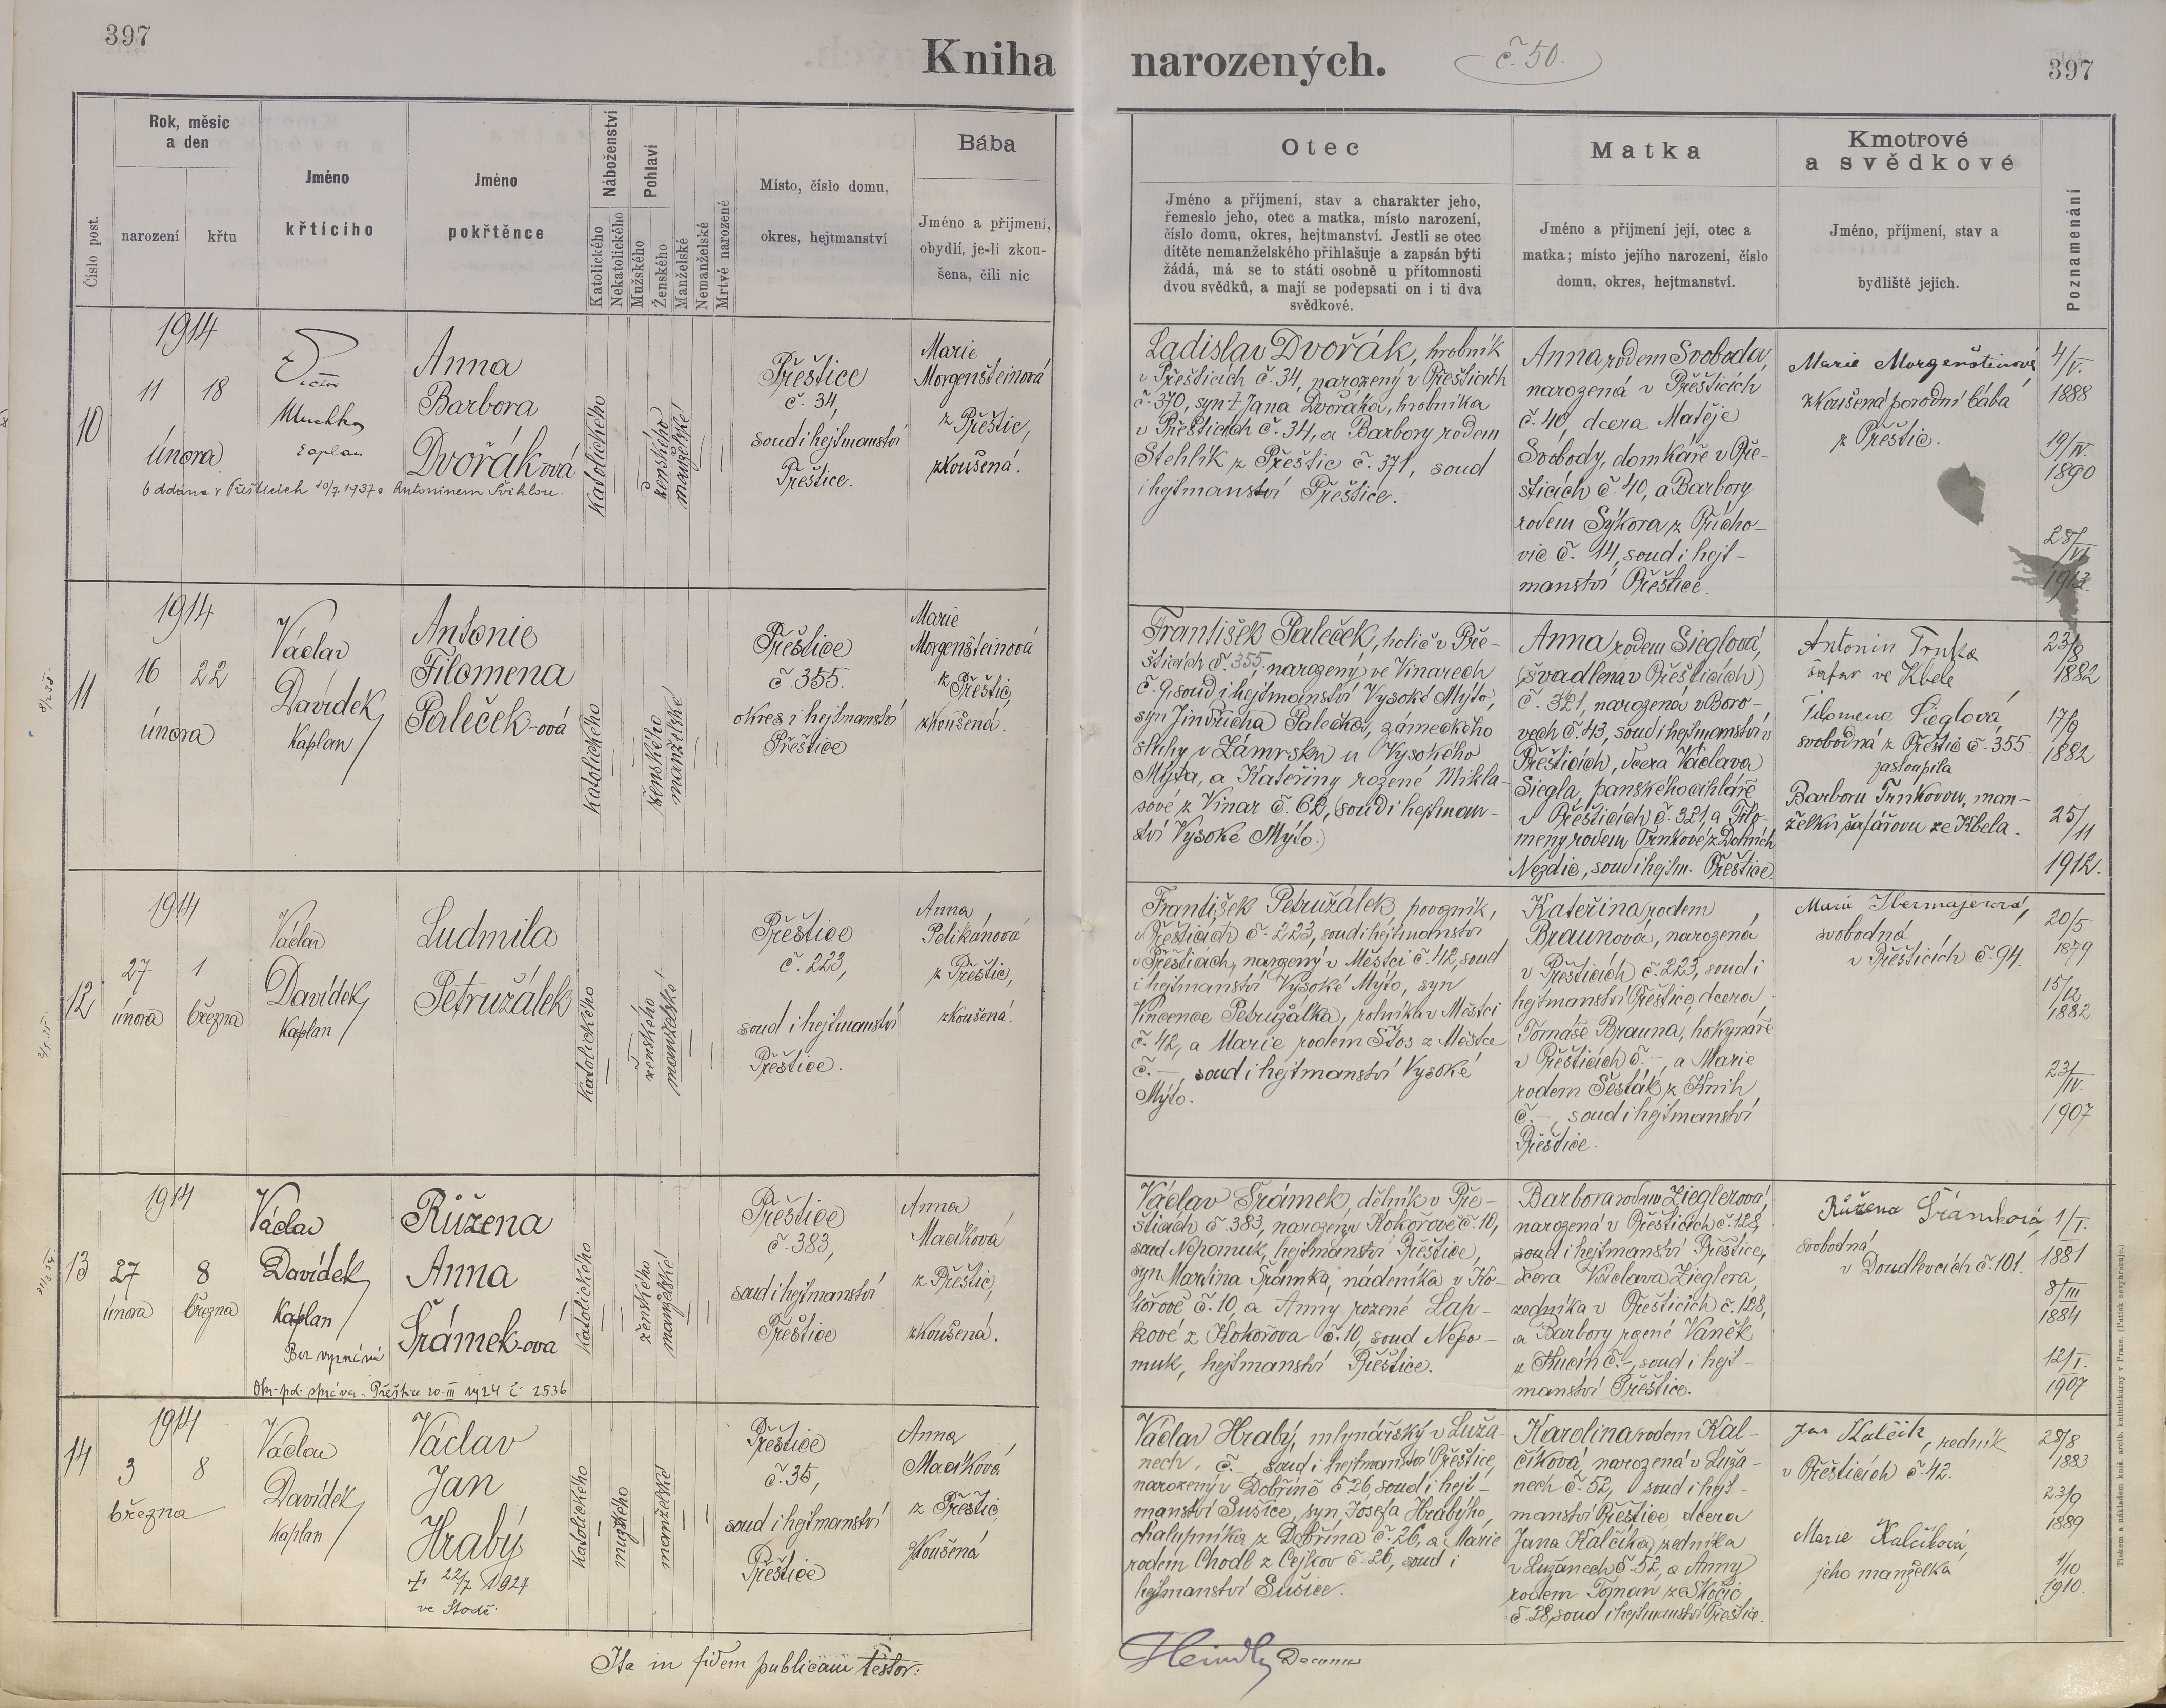 397
Kniha narozených.
č. 50.
397
Číslo post.
Rok, měsíc
a den
narození
křtu
Jméno
křtícího
Jméno
pokřtěnce
Náboženství
Katolického
Nekatolického
Pohlaví
Mužského
Ženského
Manželské
Nemanželské
Mrtvě narozené
Místo, číslo domu,
okres, hejtmanství
Bába
Jméno a přijmení,
obydlí, je-li zkou-
šena, čili nic
Otec
Jméno a příjmení, stav a charakter jeho,
řemeslo jeho, otec a matka, místo narození,
číslo domu, okres, hejtmanství. Jestli se otec
dítěte nemanželského přihlašuje a zapsán býti
žádá, má se to státi osobně u přítomnosti
dvou svědků, a mají se podepsati on i ti dva
svědkové.
Matka
Jméno a přijmení její, otec a
matka; místo jejího narození, číslo
domu, okres, hejtmanství.
Kmotrové
a svědkové
Jméno, příjmení, stav a
bydliště jejich.
Poznamenání
10
1914
11 18
února
Muchka
Anna
Barbora
Dvořák-ová
Oddána v Přešticích 10/7 1937 s Antonínem Švihlou.
Katolického
ženského
manželské
Přeštice
č. 34,
soud i hejtmanství
Přeštice.
Marie
Morgenšteinová
z Přeštic,
zkoušená.
Ladislav Dvořák, hrobník
v Přešticích č. 34, narozený v Přešticích
č. 370, syn † Jana Dvořáka, hrobníka
v Přešticích č. 34, a Barbory rodem
Stehlík z Přeštic č. 371, soud
i hejtmanství Přeštice.
Anna rodem Svoboda,
narozená v Přešticích
č. 40, dcera Matěje
Svobody, domkáře v Pře-
šticích č. 40, a Barbory
rodem Sýkora z Přícho-
vic č. 14, soud i hejt-
manství Přeštice.
Marie Morgenšteinová
zkoušená porodní bába
z Přeštic.
4/V.
1888
19/IV.
1890
28/VI
1913.
11
1914
16 22
února
Václav
Davídek
Kaplan
Antonie
Filomena
Paleček-ová
Katolického
ženského
manželské
Přeštice
č. 355.
okres i hejtmanství
Přeštice
Marie
Morgenšteinová
z Přeštic,
zkoušená.
František Paleček, holič v Pře-
šticích č. 355, narozený ve Vinarech
č. 9, soud i hejtmanství Vysoké Mýto,
syn Jindřicha Palečka, zámeckého
sluhy v Zámrsku u Vysokého
Mýta, a Kateřiny rozené Mikla-
sové z Vinar č. 62, soud i hejtman-
ství Vysoké Mýto.
Anna rodem Sieglová,
(švadlena v Přešticích)
č. 321, narozená v Boro-
vech č. 43, soud i hejtmanství v
Přešticích, dcera Václava
Siegla, panského cihláře
v Přešticích č. 321, a Filo-
meny rodem Trnkové z Dolních
Nezdic, soud i hejtm. Přeštice.
Antonín Trnka
šafář ve Kbele
Filomena Sieglová,
svobodná z Přeštic č. 355
zastoupila
Barboru Trnkovou, man-
želku šafářovu ze Kbela.
23/8
1882
17/9
1882
25/11
1912.
12
1914
27 1
února března
Václav
Davídek
Kaplan
Ludmila
Petružálek
Katolického
ženského
manželské
Přeštice
č. 223,
soud i hejtmanství
Přeštice.
Anna
Pelikánová
z Přeštic,
zkoušená.
František Petružálek, povozník,
v Přešticích č. 223, soud i hejtmanství
v Přešticích, narozený v Městci č. 42, soud
i hejtmanství Vysoké Mýto, syn
Vincence Petružálka, rolníka v Městci
č. 42, a Marie rodem Stos z Městce
č. —, soud i hejtmanství Vysoké
Mýto.
Kateřina rodem
Braunová, narozená
v Přešticích č. 223, soud i
hejtmanství Přeštice, dcera
Tomáše Brauna, hokynáře
v Přešticích č. —, a Marie
rodem Šesták z Knih
č. —, soud i hejtmanství
Přeštice.
Marie
svobodná
v Přešticích č. 94.
20/5
1879
15/12
1882
23/IV.
1907
13
1914
27 8
února března
Václav
Davídek
Kaplan
Bez vyznání
Okr. pol. správa Přeštice 20. III 1924 č. 2536
Růžena
Anna
Šrámek-ová
Katolického
ženského
manželské
Přeštice
č. 383,
soud i hejtmanství
Přeštice
Anna
Macíková
z Přeštic,
zkoušená.
Václav Šrámek, dělník v Pře-
šticích č. 383, narozený v Kokořově č. 10,
soud Nepomuk, hejtmanství Přeštice,
syn Martina Šrámka, nádeníka v Ko-
kořově č. 10, a Anny rozené Lap-
kové z Kokořova č. 10, soud Nepo-
muk, hejtmanství Přeštice.
Barbora rodem Zieglerová,
narozená v Přešticích č. 128,
soud i hejtmanství Přeštice,
dcera Václava Zieglera,
zedníka v Přešticích č. 128,
a Barbory rozené Vaněk
z Hucín č. —, soud i hejt-
manství Přeštice.
Růžena Šrámková,
svobodná
v Doudlevcích č. 101.
1/I.
1881
8/III
1884
12/I.
1907
14
1914
3 8
března
Václav
Davídek
Kaplan
Václav
Jan
Hrabý
† 22/7 1927
ve Stodě.
Katolického
mužského
manželské
Přeštice
č. 35,
soud i hejtmanství
Přeštice
Anna
Macíková
z Přeštic
zkoušená
Václav Hrabý, mlynářský v Luža-
nech, č. —, soud i hejtmanství Přeštice,
narozený v Dobříně č. 26, soud i hejt-
manství Sušice, syn Josefa Hrabýho,
chalupníka z Dobřína č. 26, a Marie
rodem Chodl z Cejkov č. 26, soud i
hejtmanství Sušice.
Karolina rodem Kal-
číková, narozená v Luža-
nech č. 52, soud i hejt-
manství Přeštice dcera
Jana Kalčíka, zedníka
v Lužanech č. 52, a Anny
rodem Toman ze Skočic
č. 28, soud i hejtmanství Přeštice.
Jan Kalčík, zedník
v Přešticích č. 42.
Marie Kalčíková,
jeho manželka
28/8
1883
23/9
1889
1/10
1910.
Ita in fidem publicam testor:
Decanus